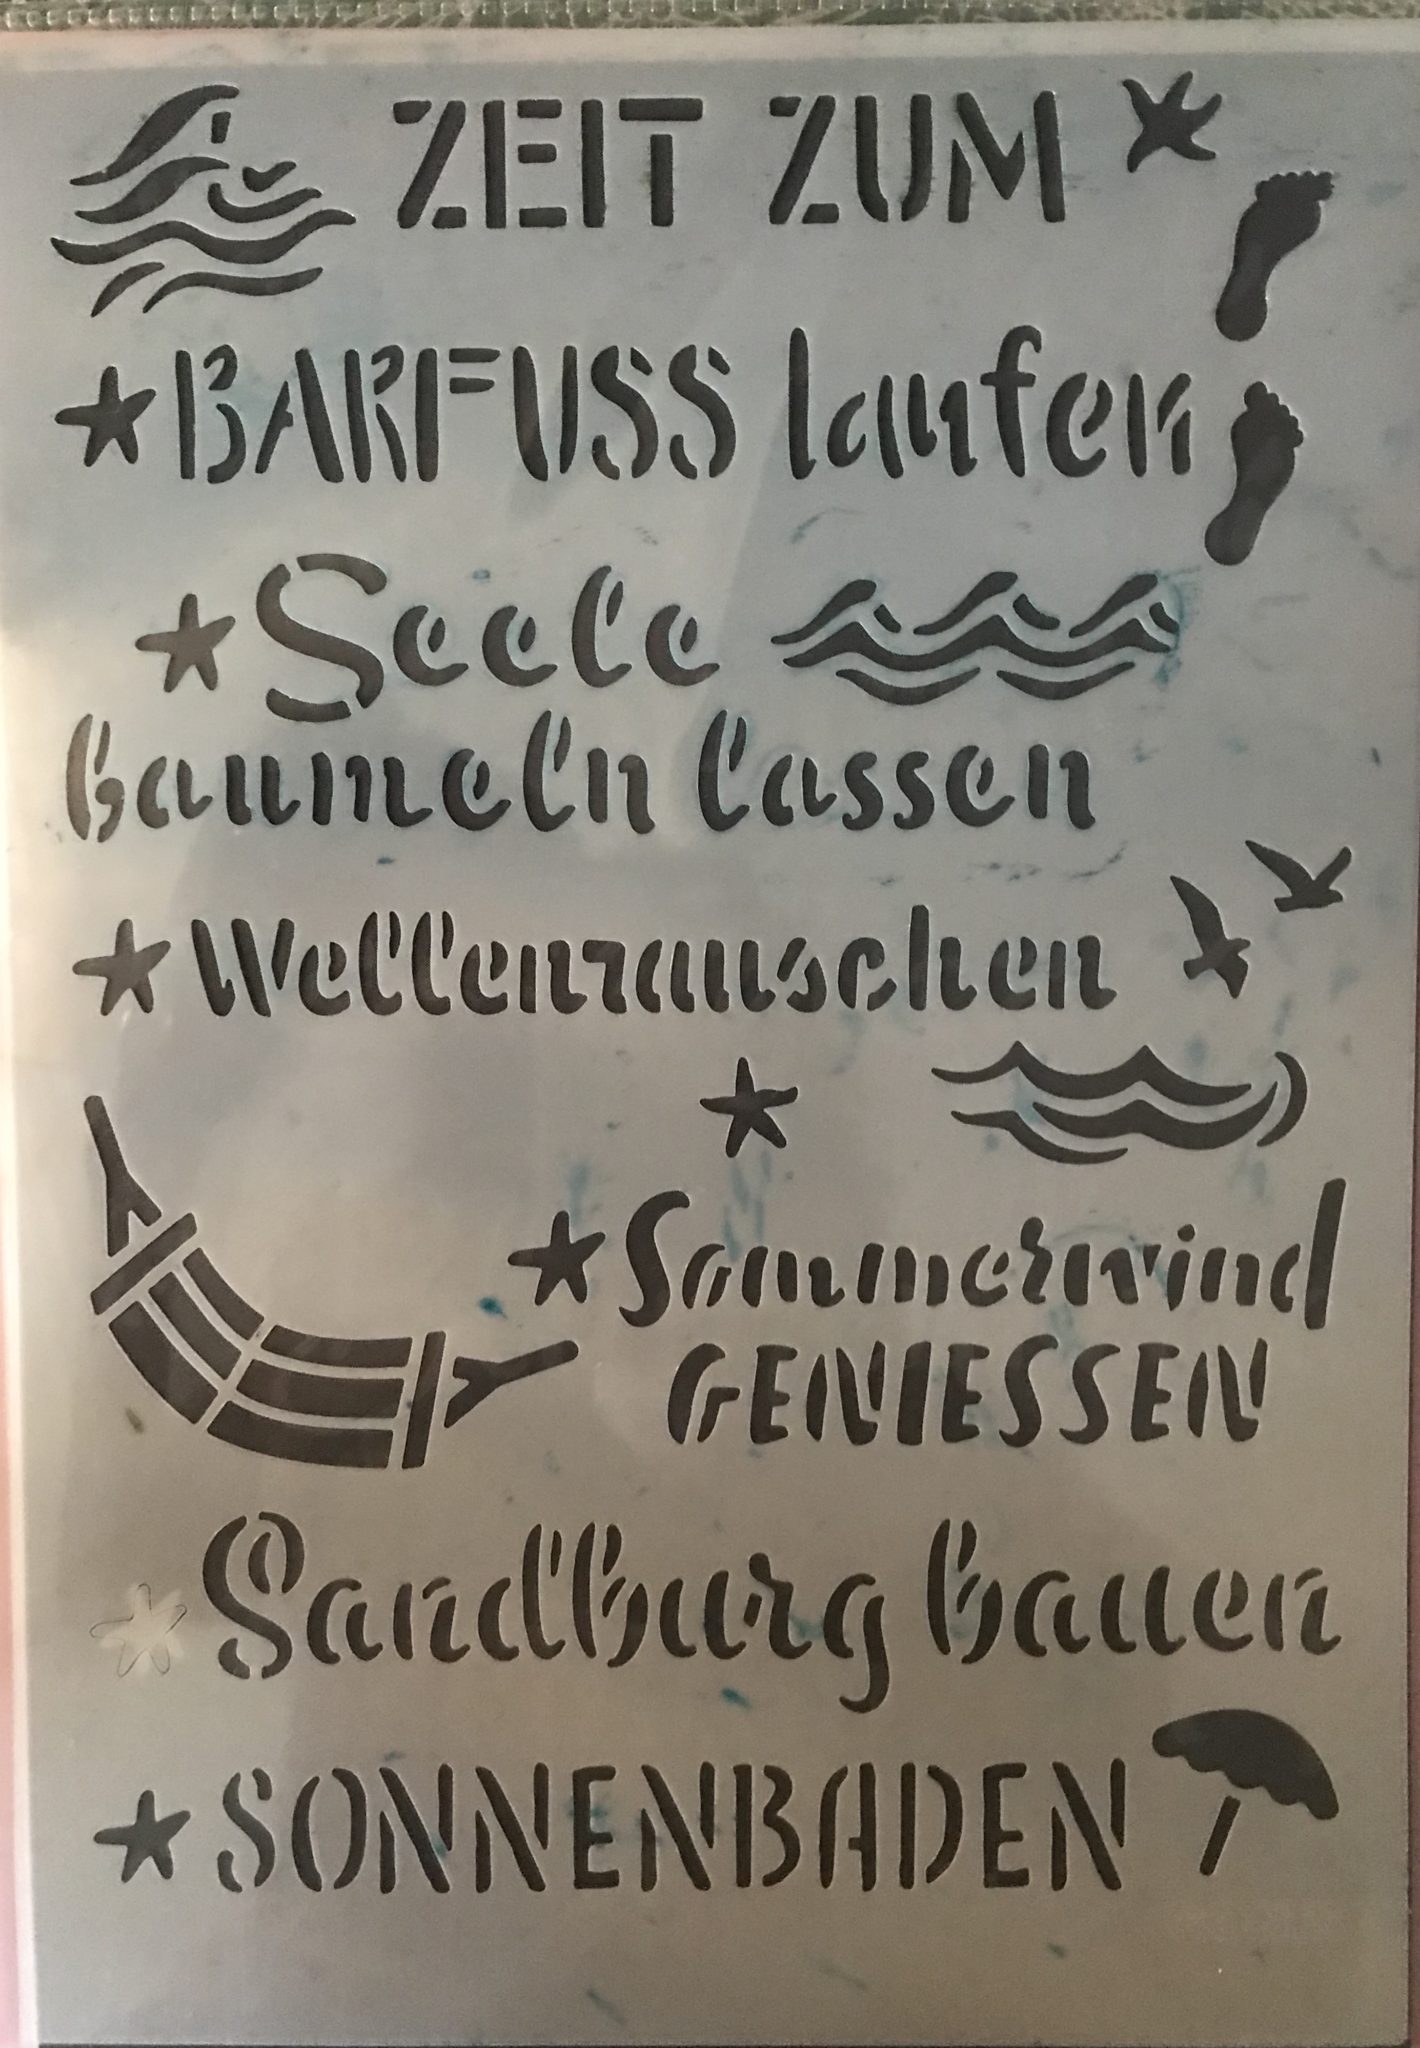 ZEIT ZUM
BARFUSS laufen
Seele
baumeln lassen
Wellenrauschen
Sommerwind
GENIESSEN
Sandburg bauen
SONNENBADEN